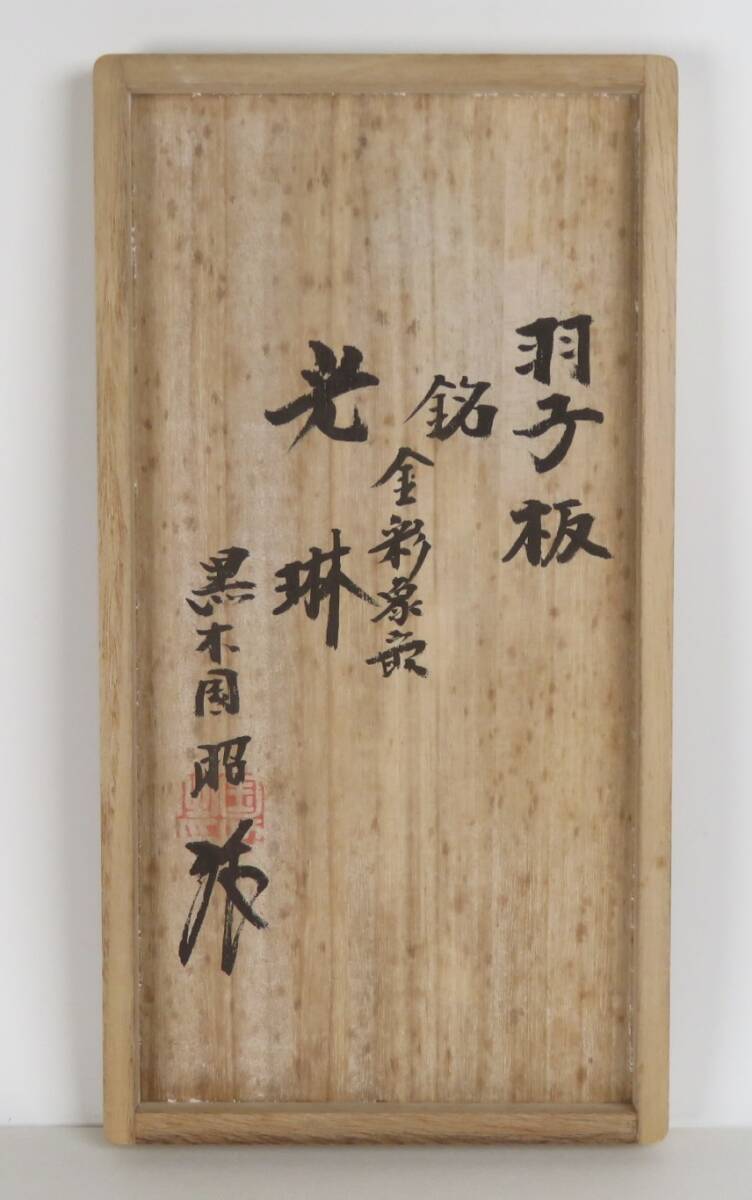 羽子板
銘
金彩象嵌
光琳
黒木国昭
作